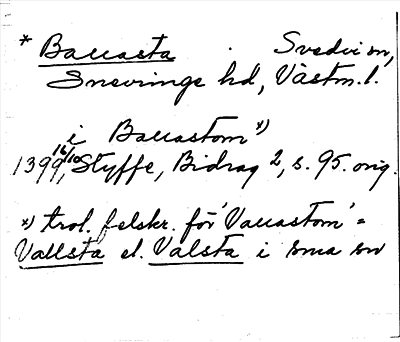 * Ballasta . Svedvi sn,
Snevringe hd, Västm.l.
i Ballastom x)
1399 16/10, Styffe, Bidrag 2, s. 95. orig.
x) trol. felskr. för 'Vallastom' =
Vallsta el. Valsta i sma sn